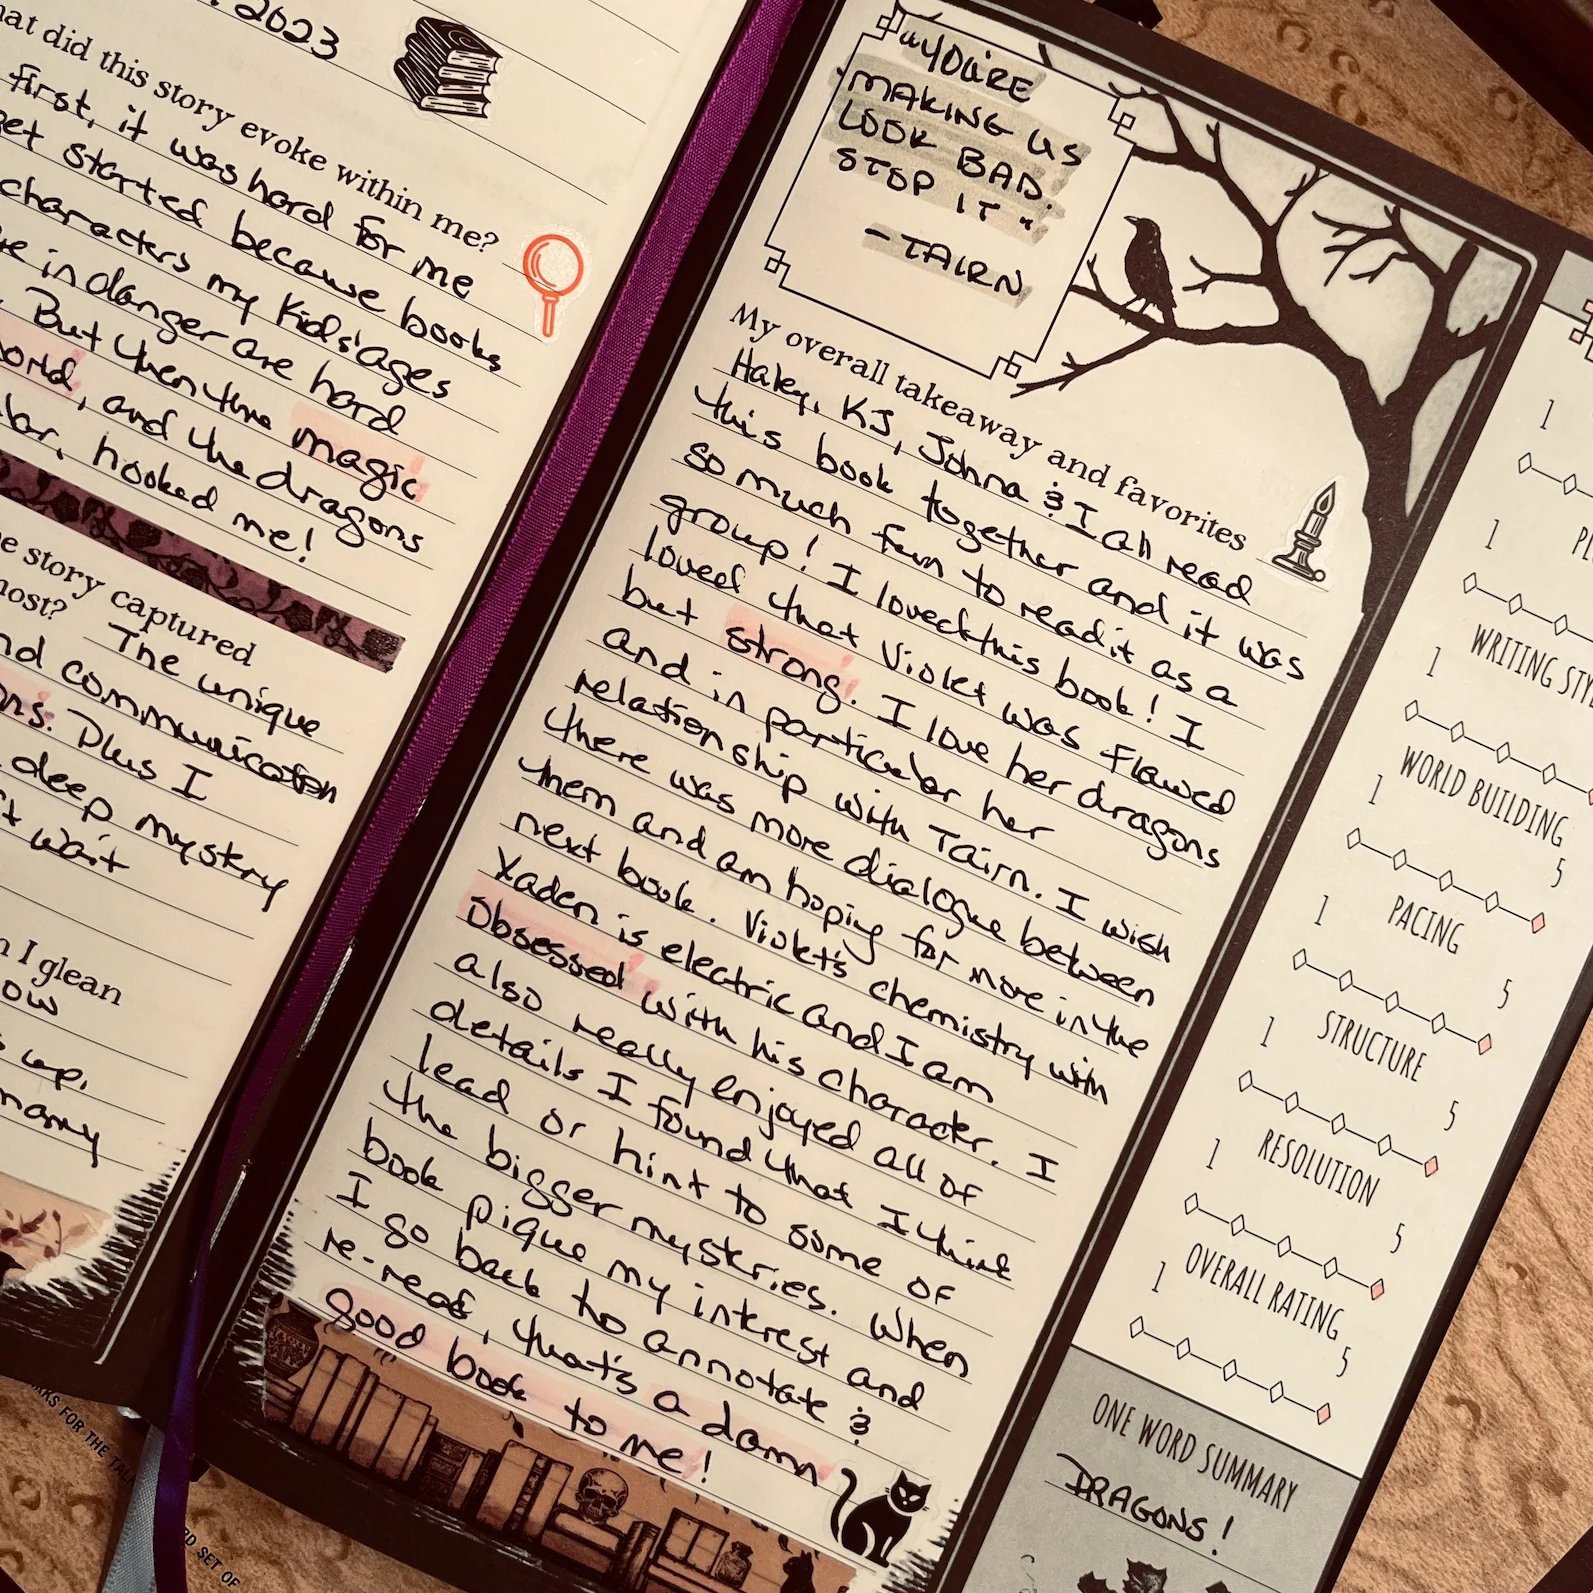 . 2023
hat did this story evoke within me?
first, it was hard for me
get started because books
characters my Kids' ages
are in danger are hard
But then the magic
world, and the dragons
hooked me!
e story captured
most? The unique
nd communication
ons. Plus I
deep mystery
t wait
n I glean
ow
up,
many
"YOU'RE
MAKING US
LOOK BAD.
STOP IT"
-TAIRN
My overall takeaway and favorites
Haley, KJ, Johna & I all read
this book together and it was
so much fun to read it as a
group! I loved this book! I
loved that Violet was flawed
but strong. I love her dragons
and in particular her
relationship with Tairn. I wish
there was more dialogue between
them and am hoping for more in the
next book. Violet's chemistry with
Xaden is electric and I am
Obsessed with his character. I
also really enjoyed all of
details I found that I think
lead or hint to some of
the bigger mysteries. When
book pique my interest and
I go back to annotate &
re-read, that's a damn
good book to me!
1
1
PL
WRITING STY
1
WORLD BUILDING
1
5
PACING
1
5
STRUCTURE
1
5
RESOLUTION
1
5
OVERALL RATING
1
5
ONE WORD SUMMARY
DRAGONS!
RKS FOR THE TAL
RD SET OF